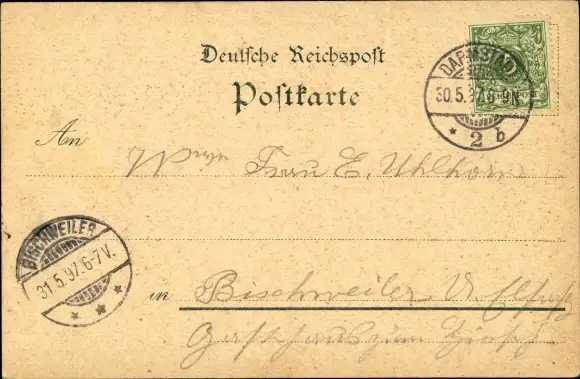 Deutsche Reichspost
Postkarte
DARMSTADT
30.5.97. 8-9N.
* 2 b
An
Frau E. Uhlhorn
BISCHWEILER
31.5.97. 6-7V.
* * *
in Bischweiler U. Elsass
Gasthaus zum Hirsch